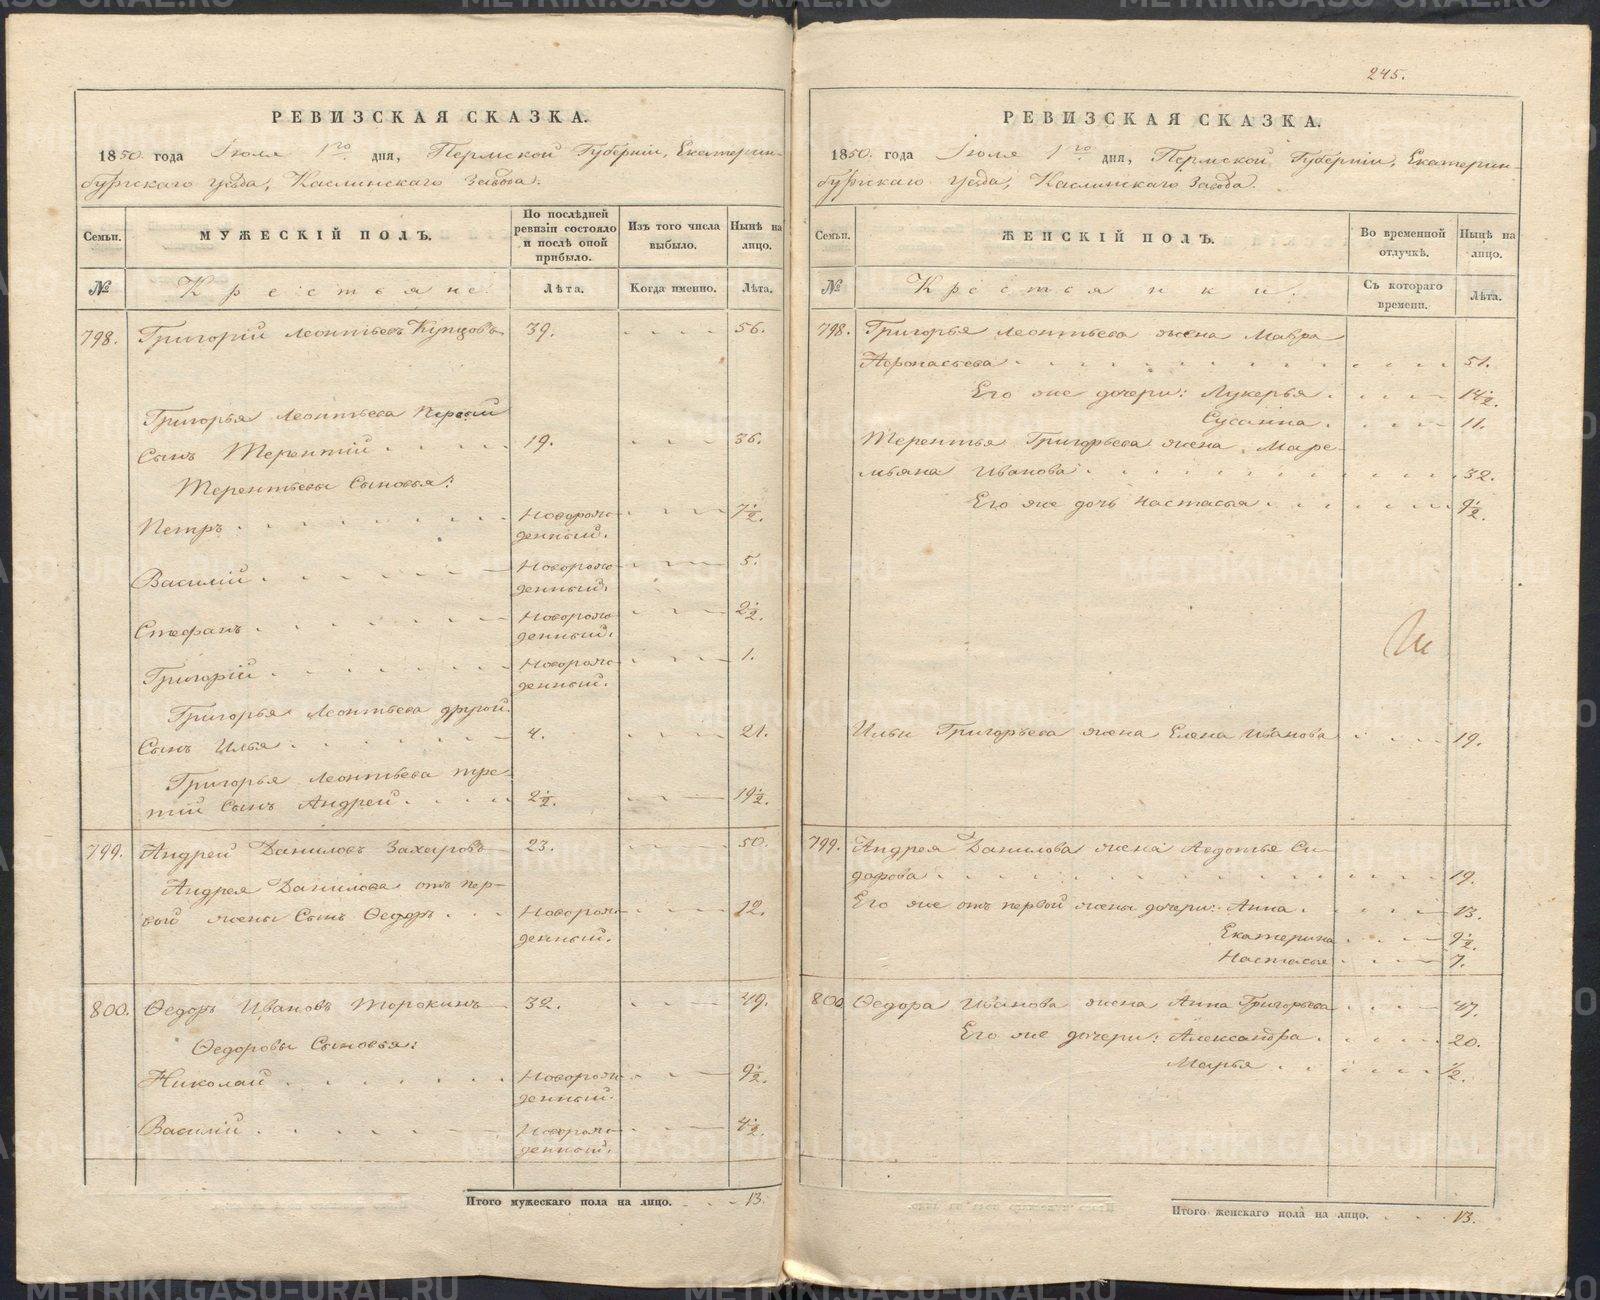 РЕВИЗСКАЯ СКАЗКА.
1850. года Іюля 1го дня, Пермской Губерніи, Екатерин-
бургскаго уѣзда, Каслинскаго Завода.
Семьи.
МУЖЕСКІЙ ПОЛЪ.
По послѣдней ревизіи состояло и послѣ оной прибыло.
Изъ того числа выбыло.
Нынѣ на лицо.
№
Крестьяне.
Лѣта.
Когда именно.
Лѣта.
798. Григорій Леонтьевъ Купцовъ 39. 56.
Григорья Леонтьева первый
сынъ Терентій 19. 36.
Терентьевы сыновья:
Петръ. Новорож- 7 1/2.
денный.
Василій. Новорож- 5.
денный.
Стефанъ. Новорож- 2 1/2.
денный.
Григорій. Новорож- 1.
денный.
Григорья Леонтьева другой
сынъ Илья. 4. 21.
Григорья Леонтьева тре-
тій сынъ Андрей. 2 1/2. 19 1/2.
799. Андрей Даниловъ Захаровъ 23. 50.
Андрея Данилова отъ пер-
вой жены сынъ Ѳедоръ. Новорож- 12.
денный.
800. Ѳедоръ Ивановъ Торокинъ 32. 49.
Ѳедоровы сыновья:
Николай Новорож- 9 1/2.
денный.
Василій Новорож- 4 1/2.
денный.
Итого мужескаго пола на лицо. 13.
245.
РЕВИЗСКАЯ СКАЗКА.
1850. года Іюля 1го дня, Пермской Губерніи, Екатерин-
бургскаго уѣзда, Каслинскаго Завода.
Семьи.
ЖЕНСКІЙ ПОЛЪ.
Во временной отлучкѣ.
Нынѣ на лицо.
№
Крестьянки.
Съ котораго времени.
Лѣта.
798. Григорья Леонтьева жена Мавра
Афонасьева 51.
Его же дочери: Лукерья. 14 1/2.
Сусанна. 11.
Терентья Григорьева жена Маре-
мьяна Иванова 32.
Его же дочь Настасья 9 1/2.
Ильи Григорьева жена Елена Иванова 19.
799. Андрея Данилова жена Авдотья Си-
дорова 19.
Его же отъ первой жены дочери: Анна. 13.
Екатерина 9 1/2.
Настасья 7.
800. Ѳедора Иванова жена Анна Григорьева 47.
Его же дочери: Александра. 20.
Марья 1/2.
Итого женскаго пола на лицо. 13.
METRIKI.GASO-URAL.RU